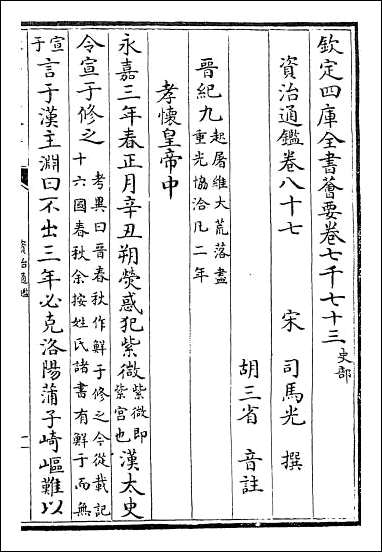 欽定四庫全書薈要卷七千七十三 史部
資治通鑑卷八十七
宋 司馬光 撰
胡三省 音註
晉紀九 起屠維大荒落盡重光協洽凡二年
孝懷皇帝中
永嘉三年春正月辛丑朔熒惑犯紫微 紫微即紫宮也 漢太史
令宣于修之 考異曰晉春秋作鮮于修之今從載記十六國春秋余按姓氏諸書有鮮于而無宣于
言于漢主淵曰不出三年必克洛陽蒲子崎嶇難以
資治通鑑